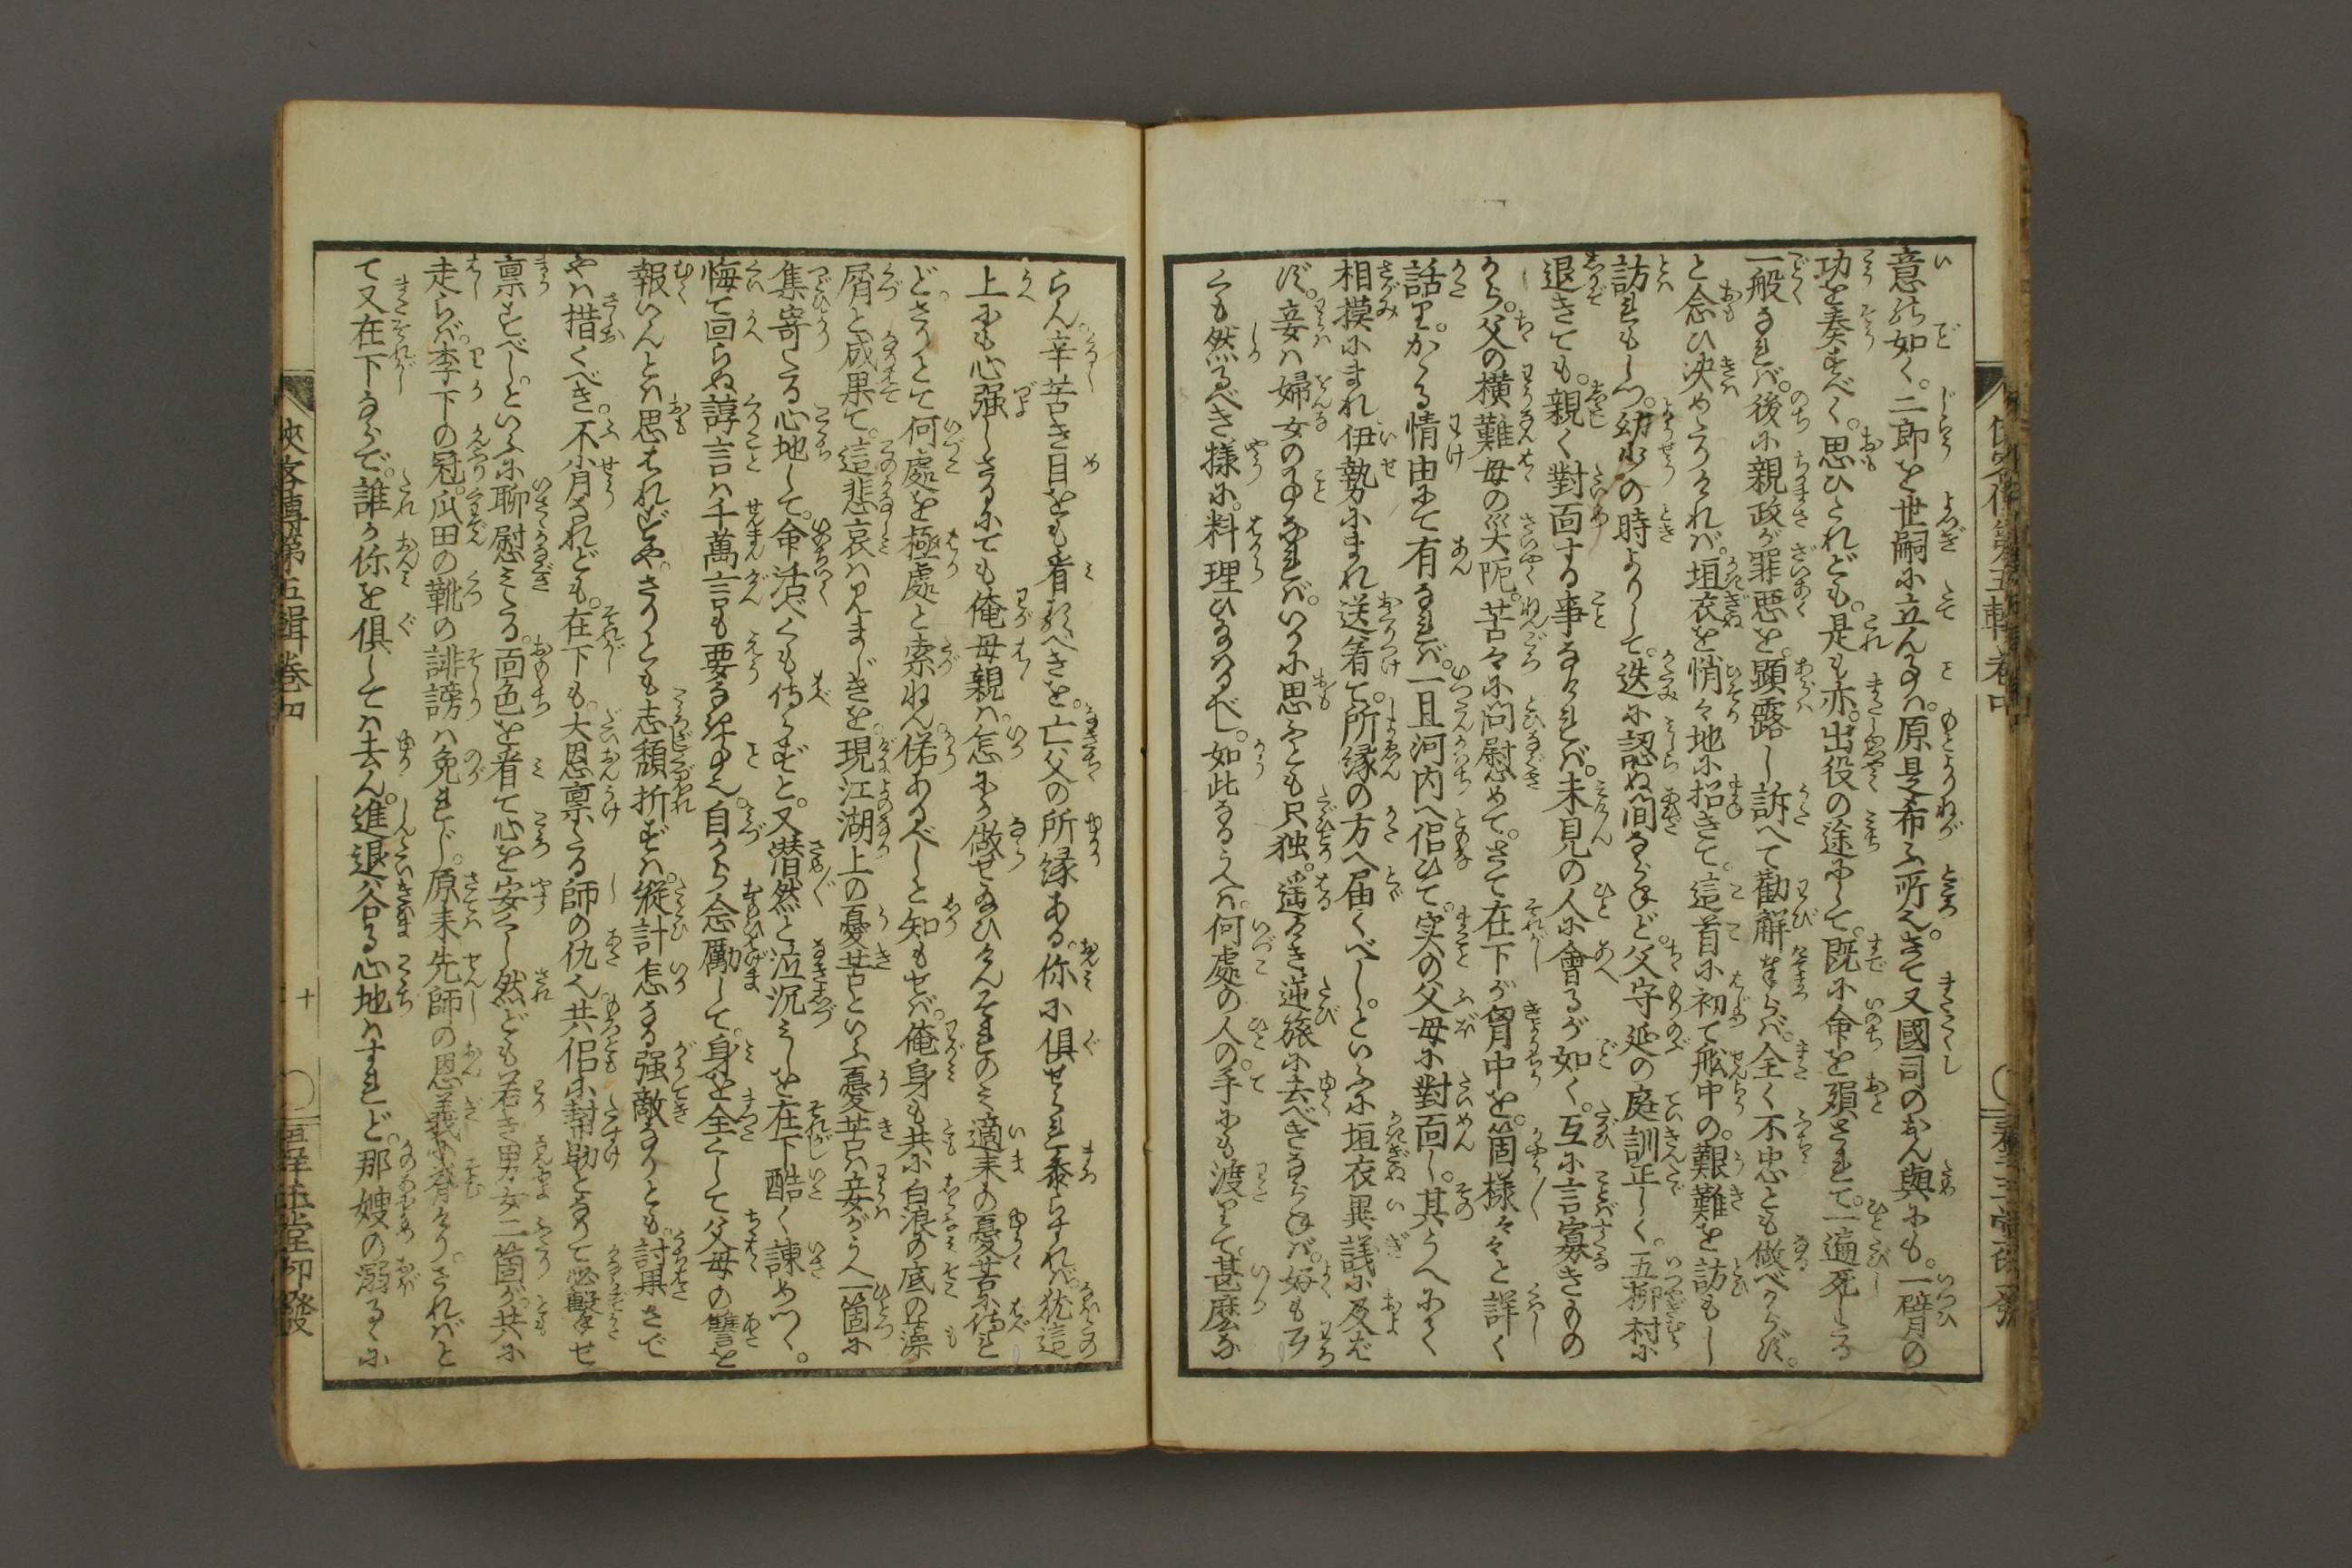 意の如く。二郎を世嗣に立んるは。原是希ふ所也。さて又國司のおん與にも。一臂の
功を奏すべく。思ひしかども。是も亦。出役の途にて。既に命を殞されて。一遍死したる
一般なれば。後に親政が罪悪を。顕露し訴へて勧解まうさば。全く不忠とも做べからず。
と念ひ決めたりければ。垣衣を悄々地に招きて。這首に初て舩中の。艱難を訪もし
訪れもしつ。幼少の時よりして。迭に認ぬ間ながらど。父守延の庭訓正しく。五柳村に
退きても。親く對面する事なければ。未見の人に會るが如く。互に言寡きものから。
父の横難母の災阨。苦々に問慰めて。さて在下が胷中を。箇様々々と詳く
話て。かゝる情由にて有なれば。一旦河内へ侶ひて。実の父母に對面し。其うへにて
相摸にまれ伊勢にまれ送着て。所縁の方へ届くべし。といふに垣衣異議に及ば
ず。妾は婦女の事なれば。いかに思ふとも只独。遥けき逆旅に去べきならねば。好も歹
くも然るべき様に。料理ひなはるべし。如此なるうへは。何處の人の。手にも渡りて。甚麼な
らん。辛苦き目をも看るべきを。亡父の所縁ある。你に俱せられ参らすれば。犹這
上にも心強しさるにても俺母親は。怎にか做せ給ひけんそれのみ適来の憂苦に侍れ
ど。さりとて何處を極處と索ねん。偌あるべしと知もせば。俺身も共に白浪の底の藻
屑と成果て。這悲哀は見まじきを。現江湖上の憂苦といふ憂苦は妾がうへ一箇に
集寄たる心地して。命活べくも侍らずと。又潜然と泣沉みしを在下酷く諌めつゝ。
悔て回らぬ諄言は千萬言も要なき事也。自から念勵して。身を全くして父母の讐を
報はんとは思はれずや。さりとも志頽折ずは。縦計怎なる强敵なりとも。討果さで
やは措くべき。不肖なれども。在下も。大恩禀たる師の仇也。共侶に幇助となりて必撃せ
禀すべし。といふに聊慰みたる。面色を看て心を安くし然ども若き男女二箇が。共に
走らば。李下の冠。瓜田の靴の誹謗は免れじ。原来先師の恩義に脊けり。さればと
て又在下ならで。誰か你を俱しては去ん。進退谷る心地はすれど。那嫂の溺るゝに
侠客傳第五輯巻四
十